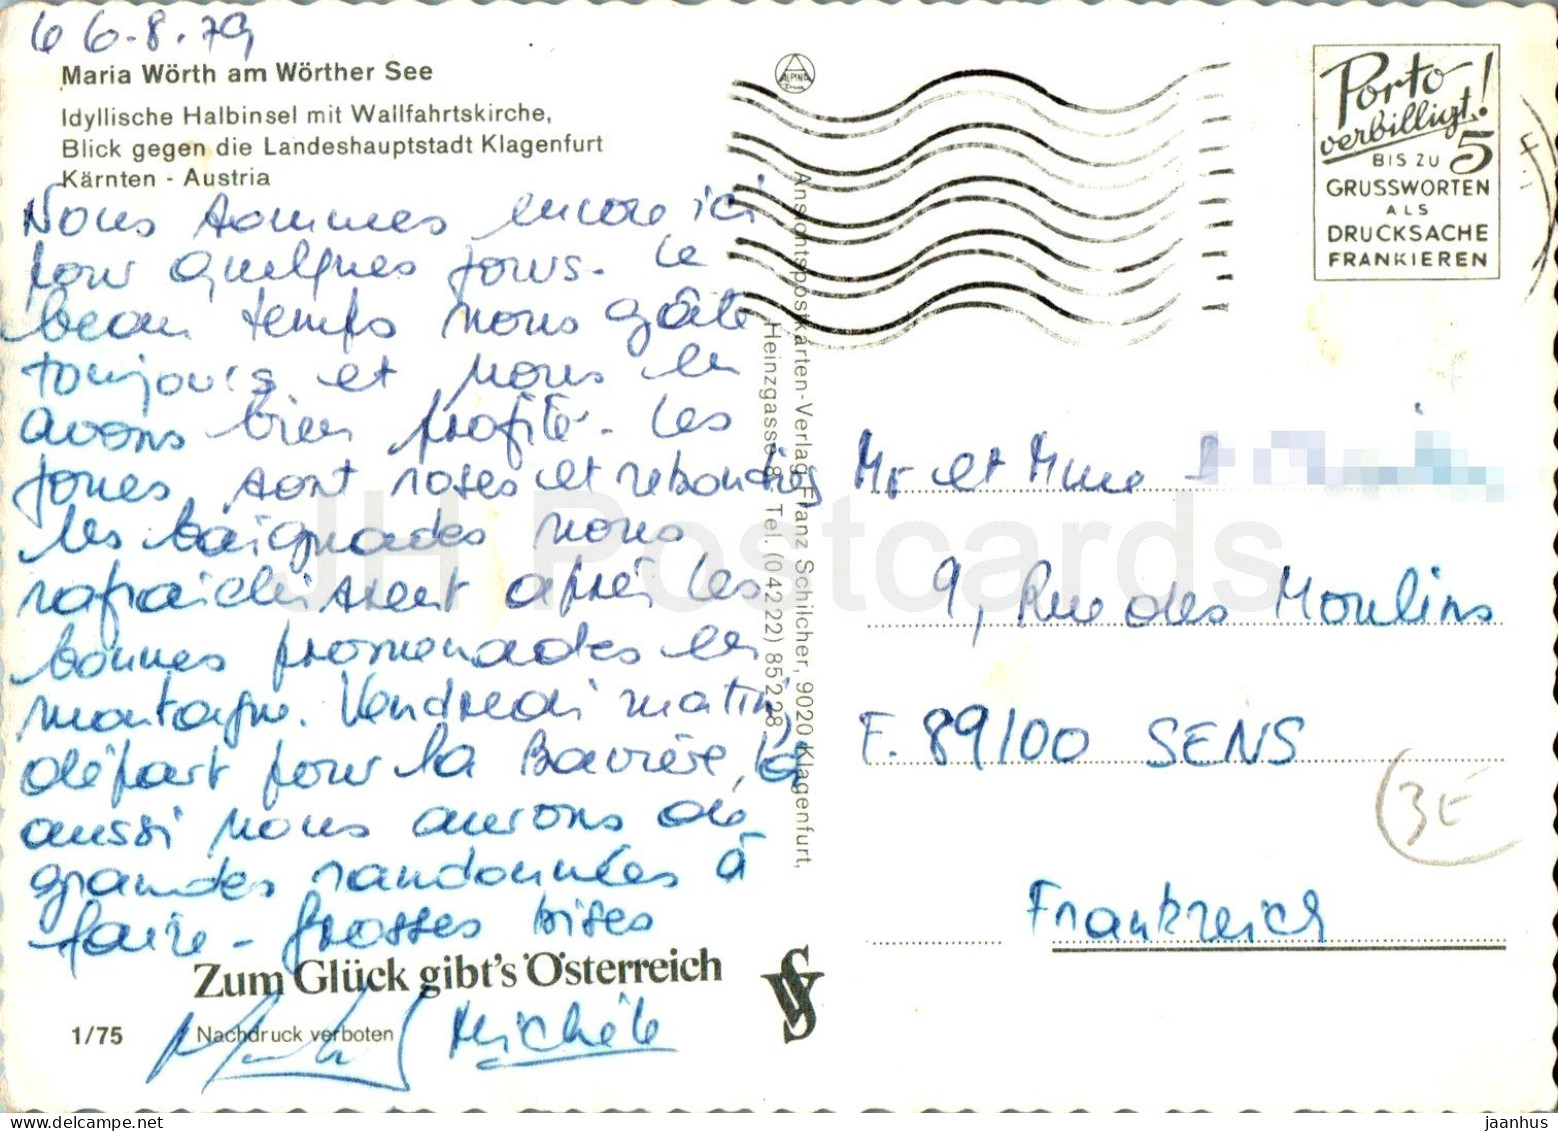 6.8.79
Maria Wörth am Wörther See
Idyllische Halbinsel mit Wallfahrtskirche,
Blick gegen die Landeshauptstadt Klagenfurt
Kärnten - Austria
Nous sommes encore ici
pour quelques jours. Le
beau temps nous gâte
toujours et nous en
avons bien profité. Les
joues sont roses et rebondies
les baignades nous
rafraichissent après les
bonnes promenades en
montagne. Vendredi matin,
départ pour la Bavière, là
aussi nous aurons de
grandes randonnées à
faire - grosses bises
Zum Glück gibt's Österreich
1/75
Nachdruck verboten
Michèle
ALPINA
Ansichtspostkarten-Verlag Franz Schilcher, 9020 Klagenfurt,
Heinzgasse 8, Tel. (04222) 85228
Porto
verbilligt!
BIS ZU 5
GRUSSWORTEN
ALS
DRUCKSACHE
FRANKIEREN
Mr et Mme
9, Rue des Moulins
F. 89100 SENS
3E
Frankreich
JH Postcards
delcampe.net
jaanhus